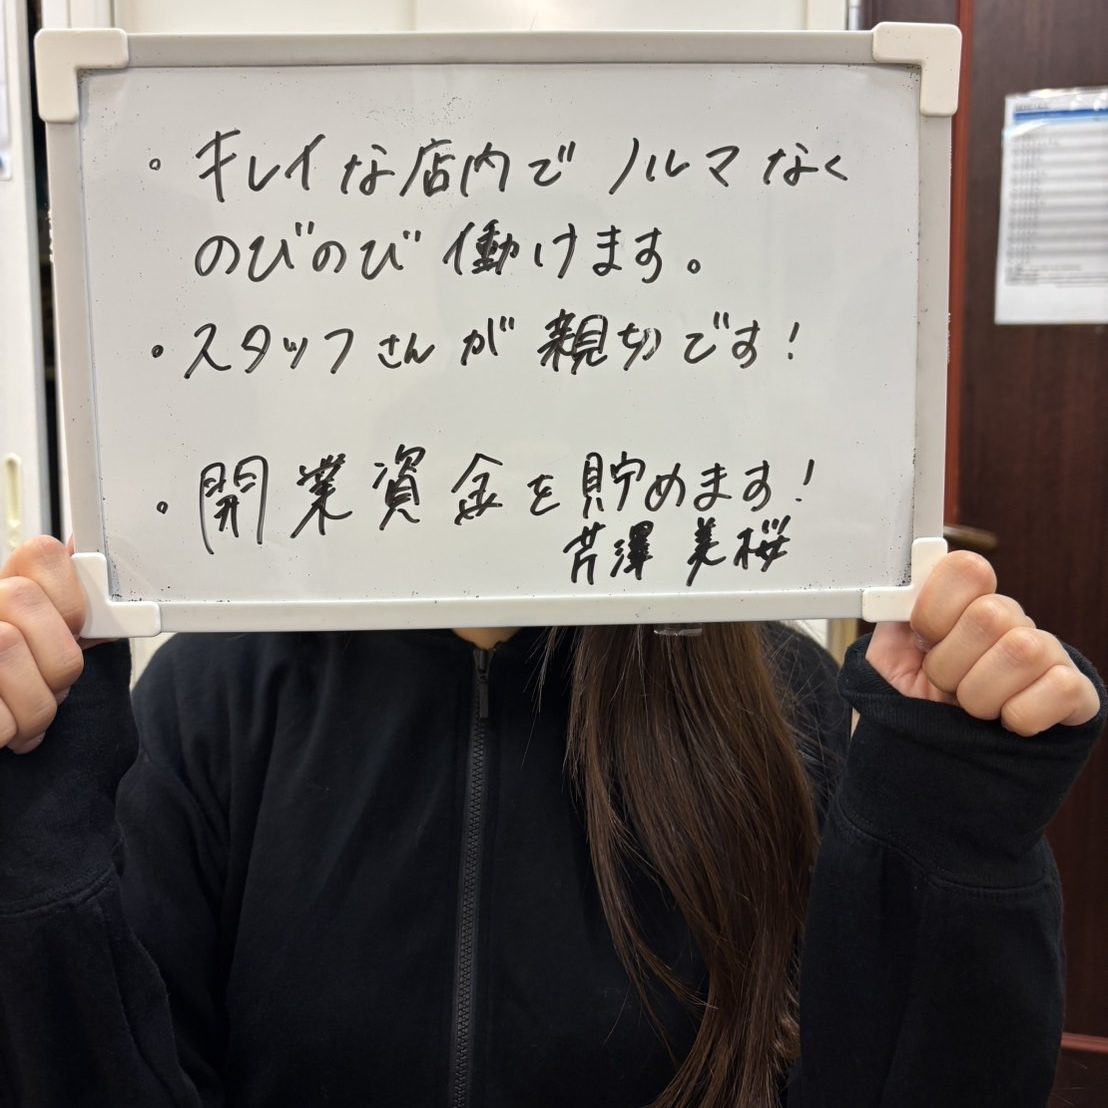 ・キレイな店内でノルマなく
のびのび働けます。
・スタッフさんが親切です！
・開業資金を貯めます！
芹澤 美桜